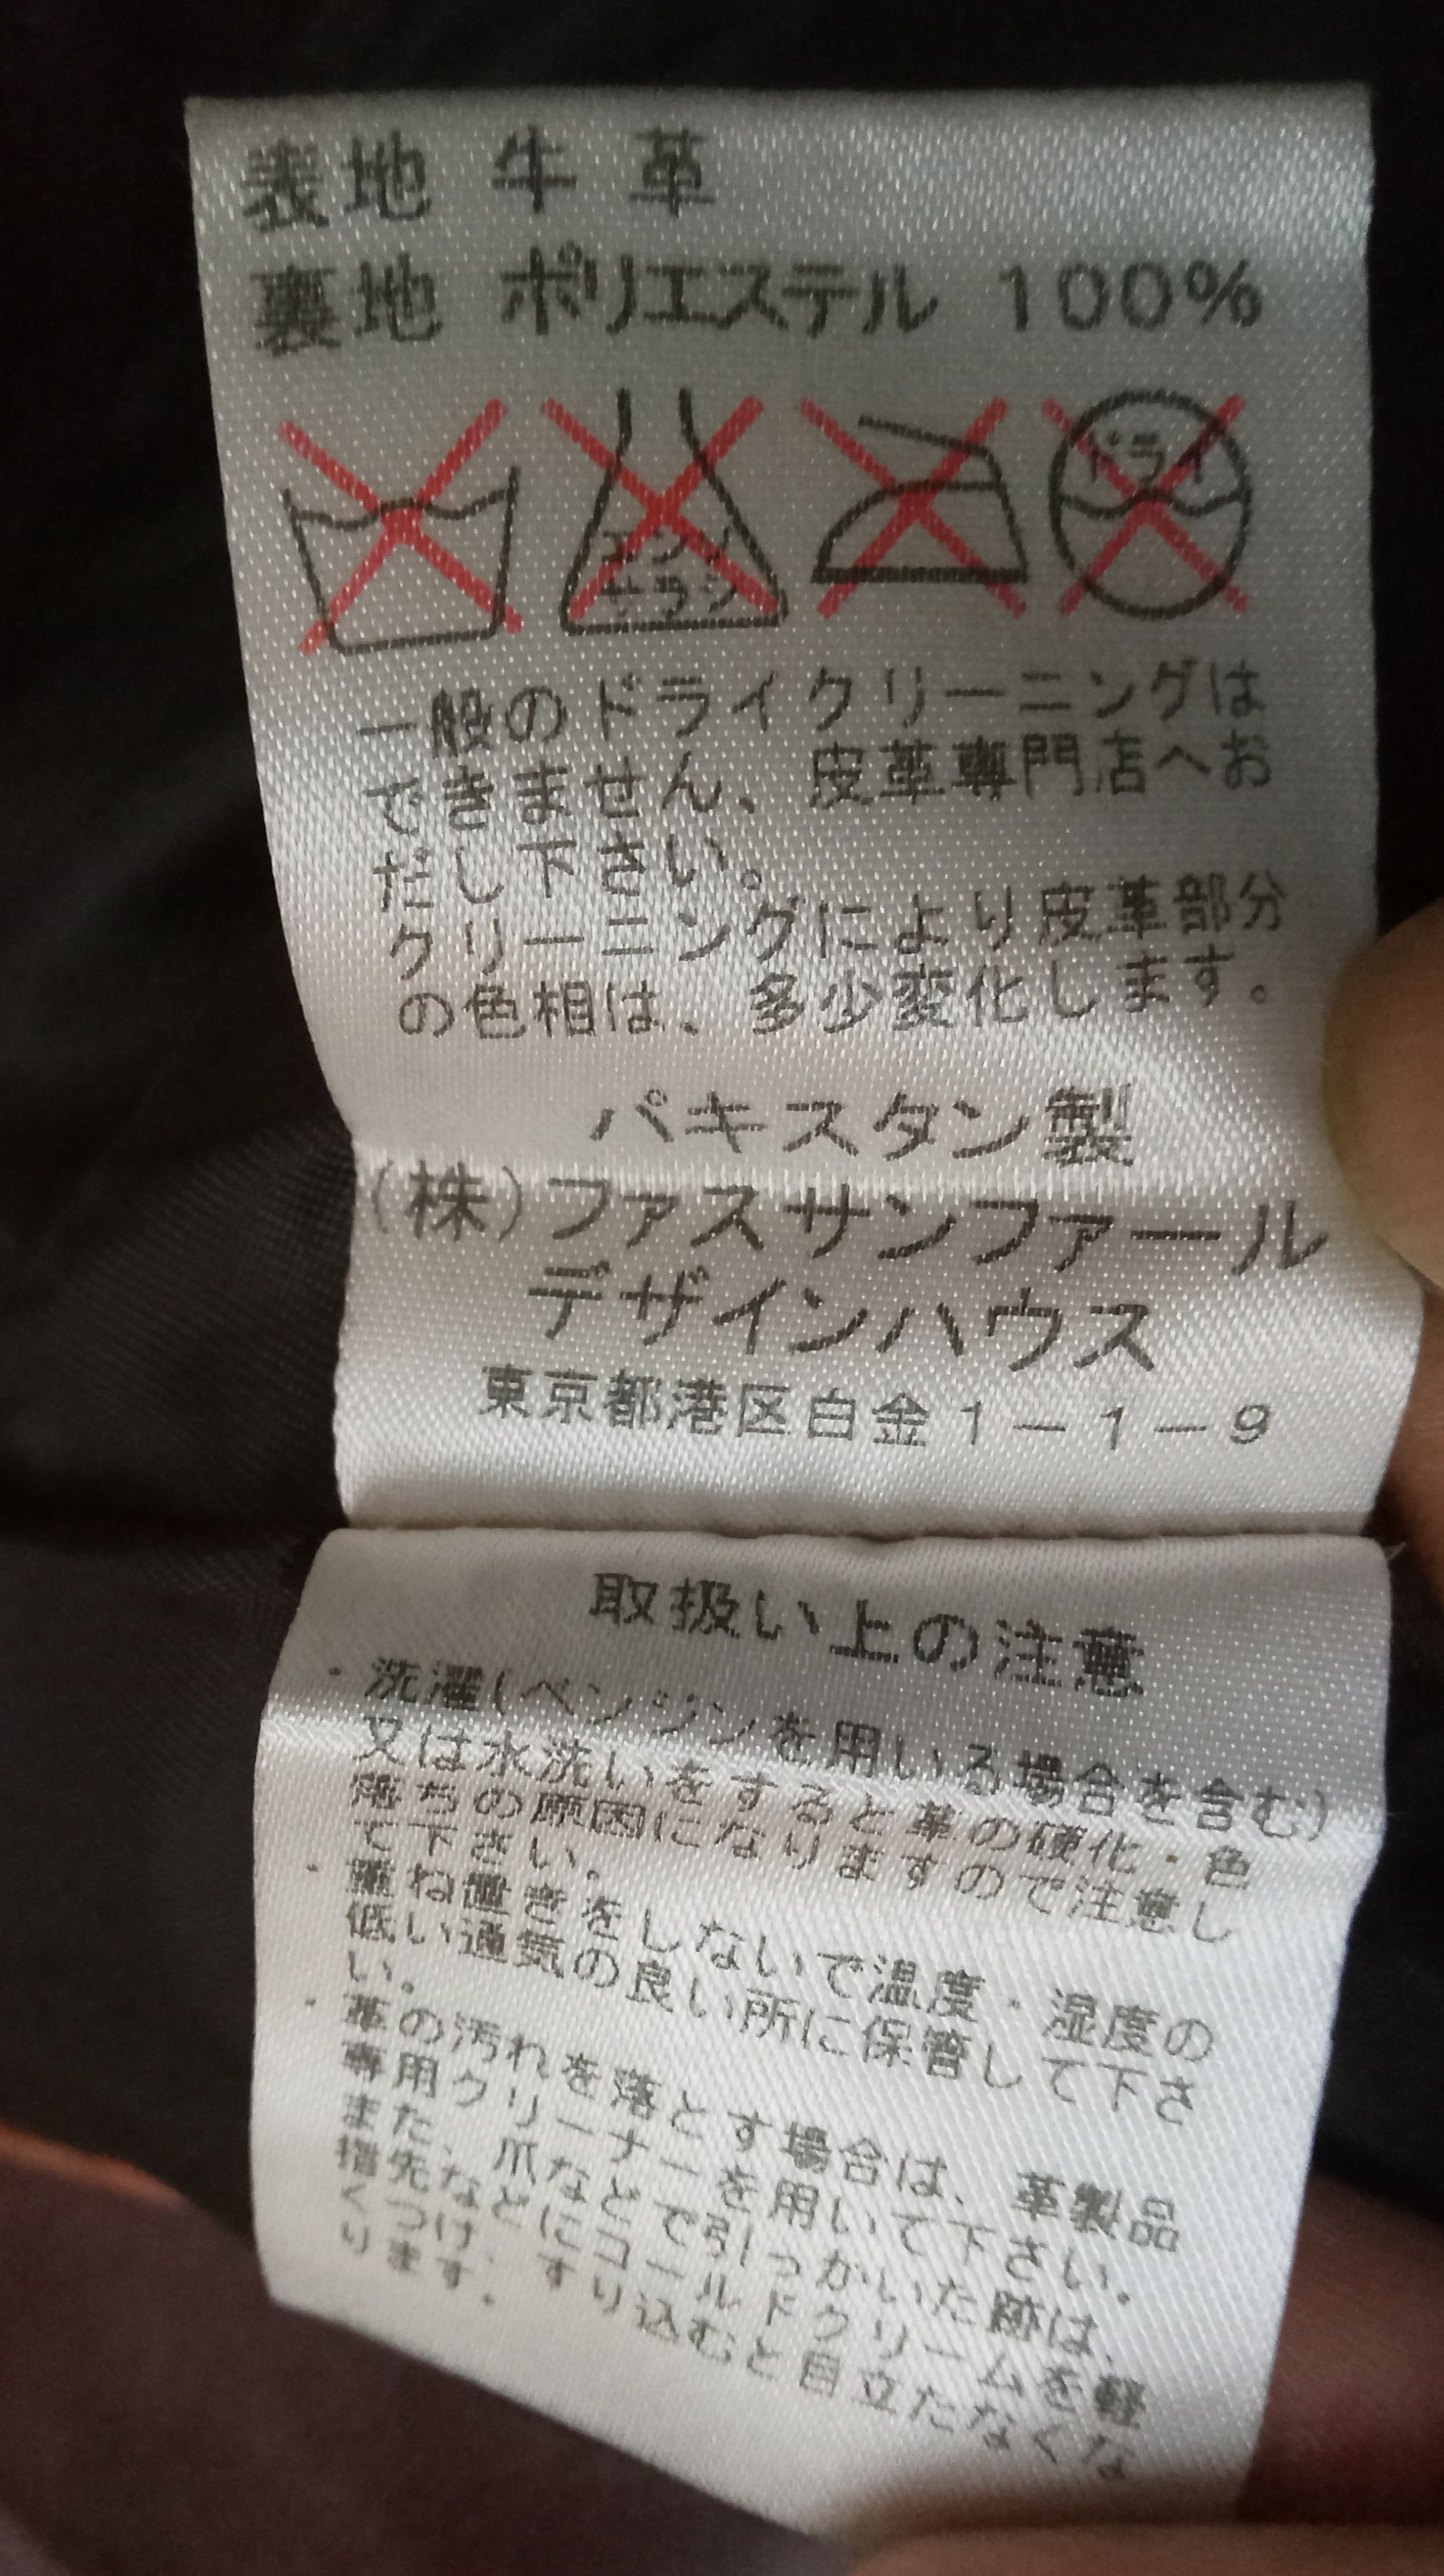 表地 牛 革
裏地 ポリエステル 100%
エンソ
サラシ
ドライ
一般のドライクリーニングは
できません、皮革専門店へお
だし下さい。
クリーニングにより皮革部分
の色相は、多少変化します。
パキスタン製
(株)ファスサンファール
デザインハウス
東京都港区白金1-1-9
取扱い上の注意
・洗濯(ベンジンを用いる場合を含む)
又は水洗いをすると革の硬化・色
落ちの原因になりますので注意し
て下さい。
・重ね置きをしないで温度・湿度の
低い通気の良い所に保管して下さ
い。
・革の汚れを落とす場合は、革製品
専用クリーナーを用いて下さい。
また、爪などで引っかいた跡は、
指先などにコールドクリームを軽
くつけ、すり込むと目立たなくな
ります。